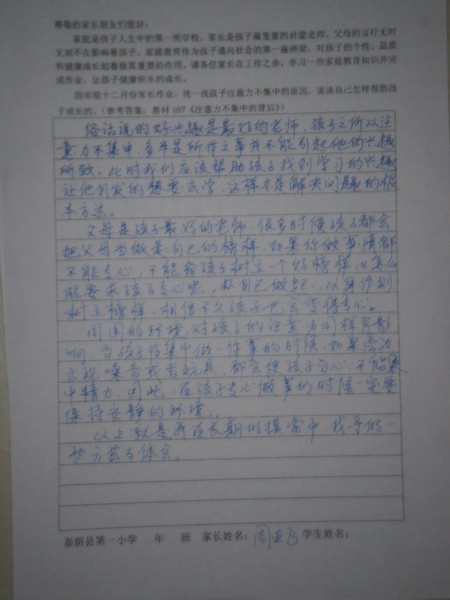 尊敬的家长朋友们您好：
家庭是孩子人生中的第一所学校，家长是孩子最重要的启蒙老师，父母的言行无时
无刻不在影响着孩子，家庭教育作为孩子通向社会的第一座桥梁，对孩子的个性、品质
和健康成长起着极其重要的作用，请各位家长在工作之余，学习一些家庭教育知识并完
成作业，让孩子健康快乐的成长。
四年级十二月份家长作业：找一找孩子注意力不集中的原因，谈谈自己怎样帮助孩
子成长的。（参考答案：教材107《注意力不集中的背后》）
俗话说的好兴趣是最好的老师，孩子之所以注
意力不集中，多半是所作之事并不能引起他们的兴趣
所致，此时我们应该帮助孩子找到学习的兴趣
让他们发自的想要去学，这样才是解决问题的根
本方法。
父母是孩子最好的老师，很多时候孩子都会
把父母当做是自己的榜样，如果你做事情都
不能专心，不能给孩子树立一个好榜样，又怎么
能要求孩子专心呢，从自己做起，以身作则
树立榜样，相信不久孩子也会变得专心。
周围的环境对孩子的注意力同样有影
响，当孩子在集中做一件事的时候，如果旁边
出现噪音或者玩具，都会使孩子分心，不能集
中精力，因此，在孩子专心做事的时候一定要
保持安静的环境。
以上就是我在长期的摸索中，找寻的一
些方法与体会。
嘉荫县第一小学 年 班 家长姓名： 学生姓名：